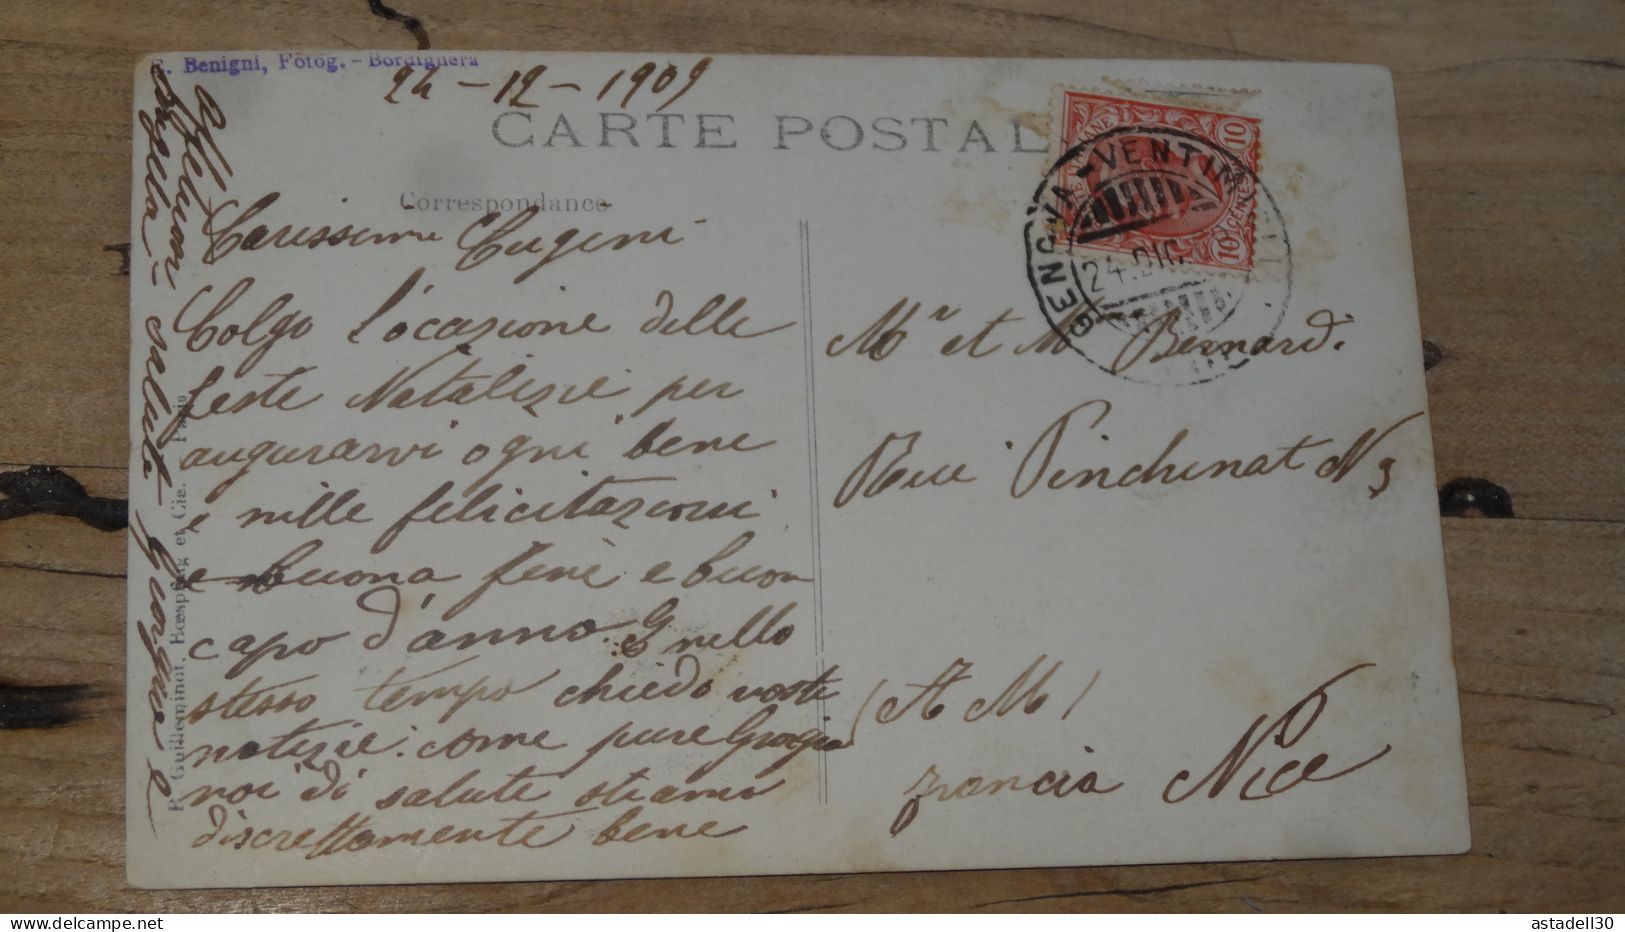 E. Benigni, Fotog. - Bordighera
24 - 12 - 1909
CARTE POSTAL
Correspondance
Carissimi Eugeni
Colgo l'ocazione delle
feste Natalizie per
augurarvi ogni bene
e mille felicitazioni
e buona fine e buon
capo d'anno. E nello
stesso tempo chiedo vostre
notizie: come pure Giorgio
noi di salute stiamo
discrettamente bene
saluta Giorgio e
R. Guilleminot, Bœspflug et Cie. Paris
10
10
CENTES
GENOVA-VENTIM
24.DIC
Mr et M Bernardi
Rue Pinchinat N 3
(A M)
francia Nice
astadell30